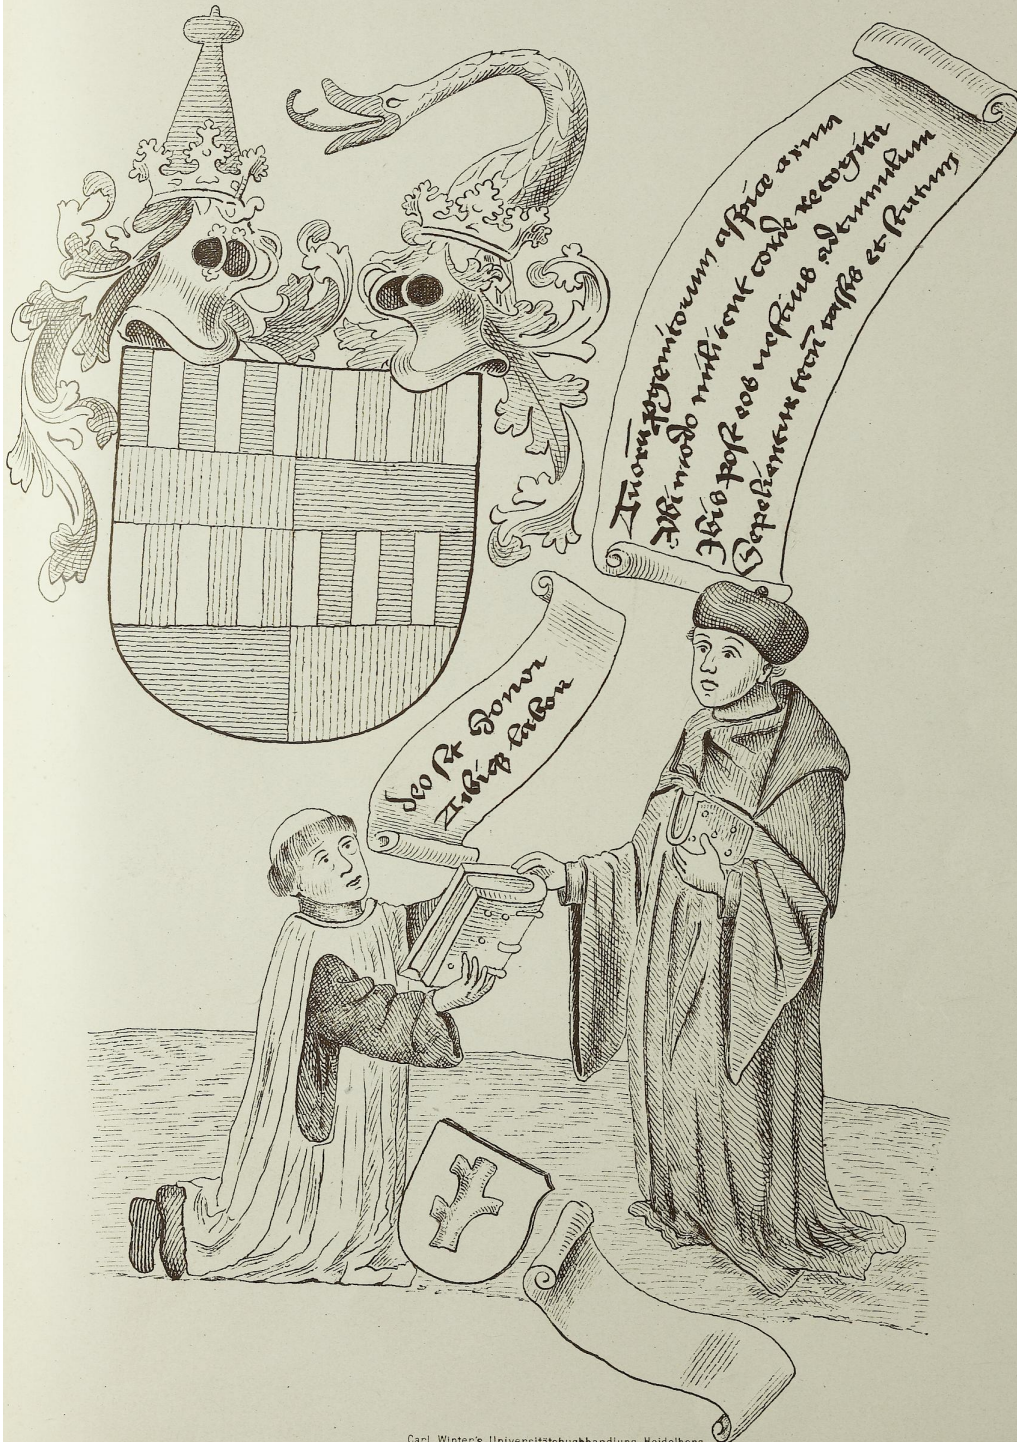 Tuorū pgenitorum aspice arma
Vbi modo militent corde recogita
Ibis post eos nescius ad tumulum
Sepelientur tecū cassis et scutum
deo sit honor
labor
Carl Winter's Universitätsbuchhandlung, Heidelberg.